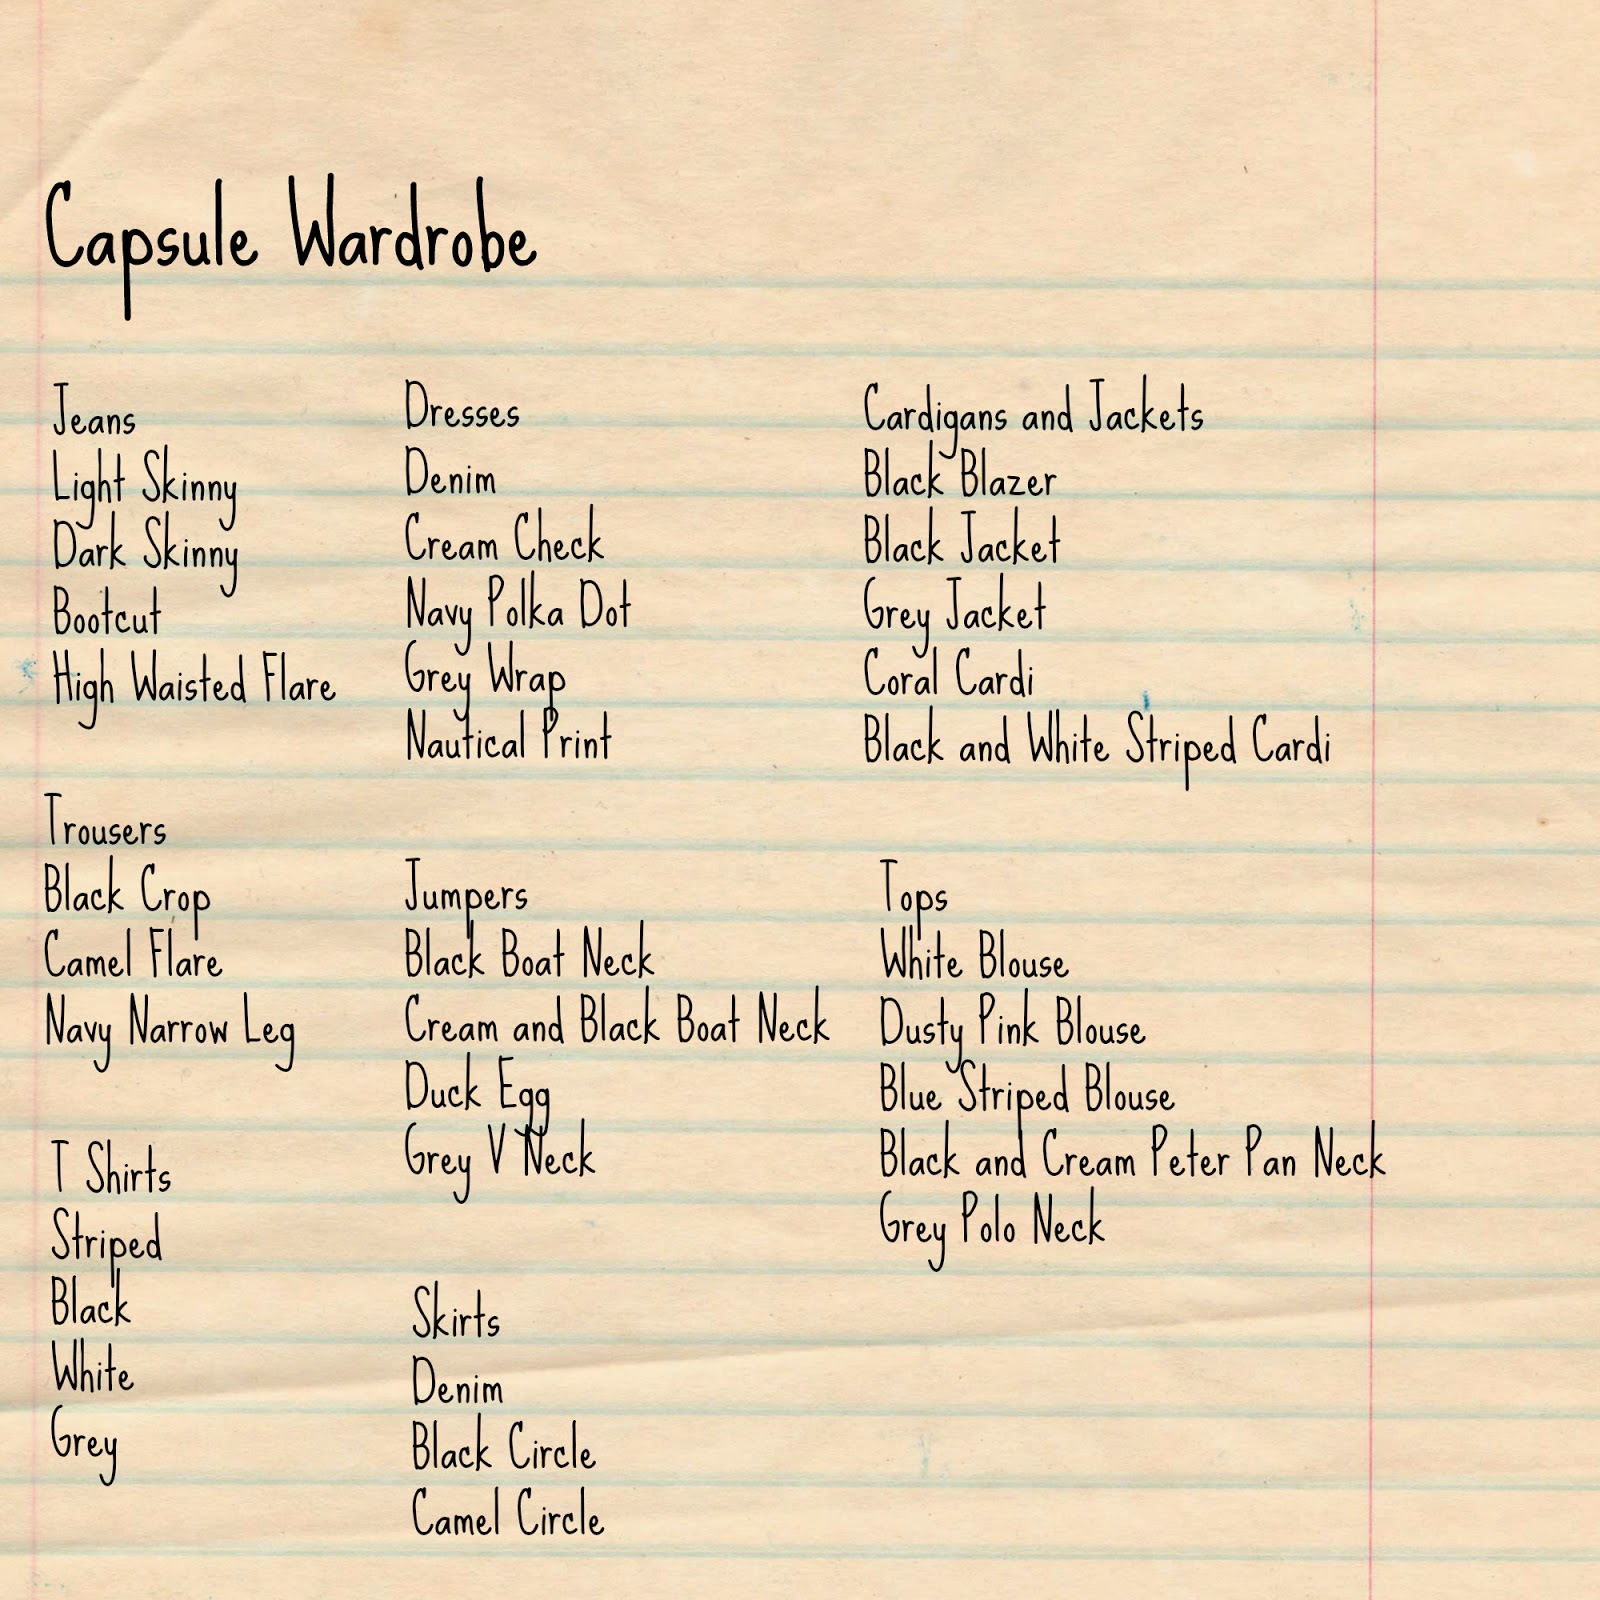 Capsule Wardrobe
Jeans
Light Skinny
Dark Skinny
Bootcut
High Waisted Flare
Trousers
Black Crop
Camel Flare
Navy Narrow Leg
T Shirts
Striped
Black
White
Grey
Dresses
Denim
Cream Check
Navy Polka Dot
Grey Wrap
Nautical Print
Jumpers
Black Boat Neck
Cream and Black Boat Neck
Duck Egg
Grey V Neck
Skirts
Denim
Black Circle
Camel Circle
Cardigans and Jackets
Black Blazer
Black Jacket
Grey Jacket
Coral Cardi
Black and White Striped Cardi
Tops
White Blouse
Dusty Pink Blouse
Blue Striped Blouse
Black and Cream Peter Pan Neck
Grey Polo Neck